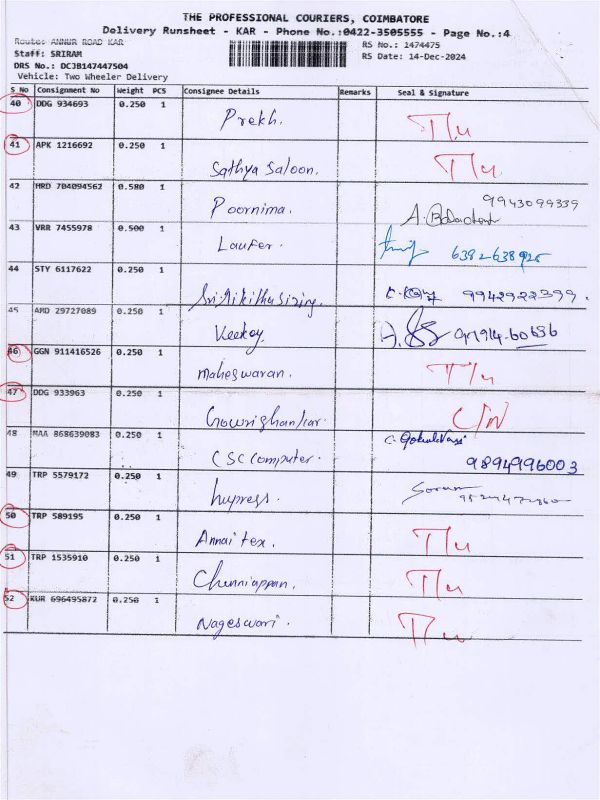 THE PROFESSIONAL COURIERS, COIMBATORE
Delivery Runsheet - KAR - Phone No.:0422-3505555 - Page No.:4
Route: ANNUR ROAD KAR
RS No.: 1474475
Staff: SRIRAM
RS Date: 14-Dec-2024
DRS No.: DCJB147447504
Vehicle: Two Wheeler Delivery
S No Consignment No Weight PCS Consignee Details Remarks Seal & Signature
40 DDG 934693 0.250 1 Prekh. T/u
41 APK 1216692 0.250 1 Sathya Saloon. T/u
42 MRD 704094562 0.580 1 Poornima. 9943099339
43 VRR 7455978 0.500 1 Laufer.
44 STY 6117622 0.250 1 9942922399.
45 AMD 29727089 0.250 1 Keekay.
46 GGN 911416526 0.250 1 maheswaran. T/u
47 DDG 933963 0.250 1 Gowrishankar. C/N
48 MAA 868639083 0.250 1 CSC Computer. 9894996003
49 TRP 5579172 0.250 1
50 TRP 589195 0.250 1 Annai tex. T/u
51 TRP 1535910 0.250 1 Chenniappan. T/u
52 KUR 696495872 0.250 1 Nageswari. T/u